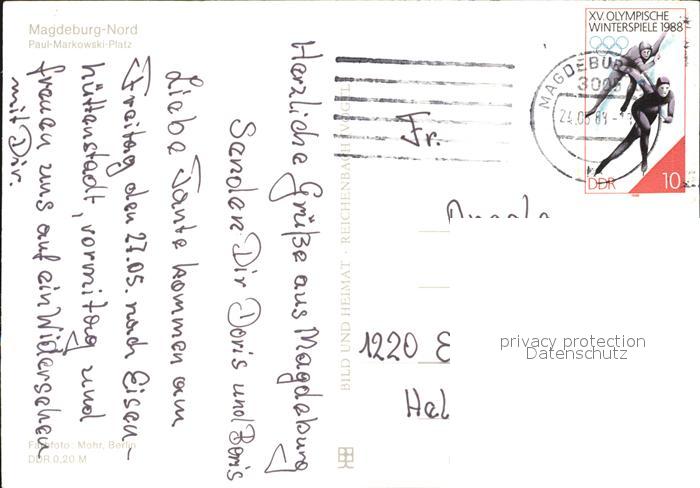 Magdeburg-Nord
Paul-Markowski-Platz
Herzliche Grüße aus Magdeburg
Senden Dir Doris und Boris
Liebe Tante kommen am
Freitag den 27.05. nach Eisen-
hüttenstadt, vormittag und
freuen uns auf ein Widersehen
mit Dir.
Farbfoto: Mohr, Berlin
DDR 0,20 M
BILD UND HEIMAT · REICHENBACH (VOGTL
XV. OLYMPISCHE
WINTERSPIELE 1988
DDR
10
MAGDEBURG
Fr.
1220 E
Hel
privacy protection
Datenschutz